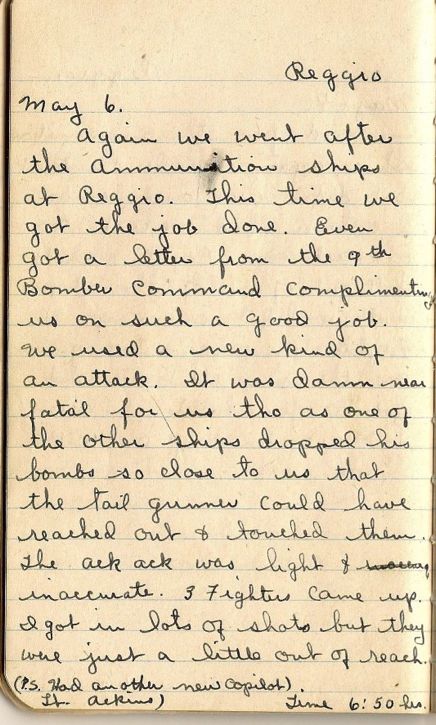 Reggio
May 6.
Again we went after
the ammunition ships
at Reggio. This time we
got the job done. Even
got a letter from the 9th
Bomber Command complimenting
us on such a good job.
We used a new kind of
an attack. It was damn near
fatal for us tho as one of
the other ships dropped his
bombs so close to us that
the tail gunner could have
reached out & touched them.
The ack ack was light &
inaccurate. 3 Fighters came up.
I got in lots of shots but they
were just a little out of reach.
(P.S. Had another new copilot)
Lt. Ackins) Time 6:50 hrs.